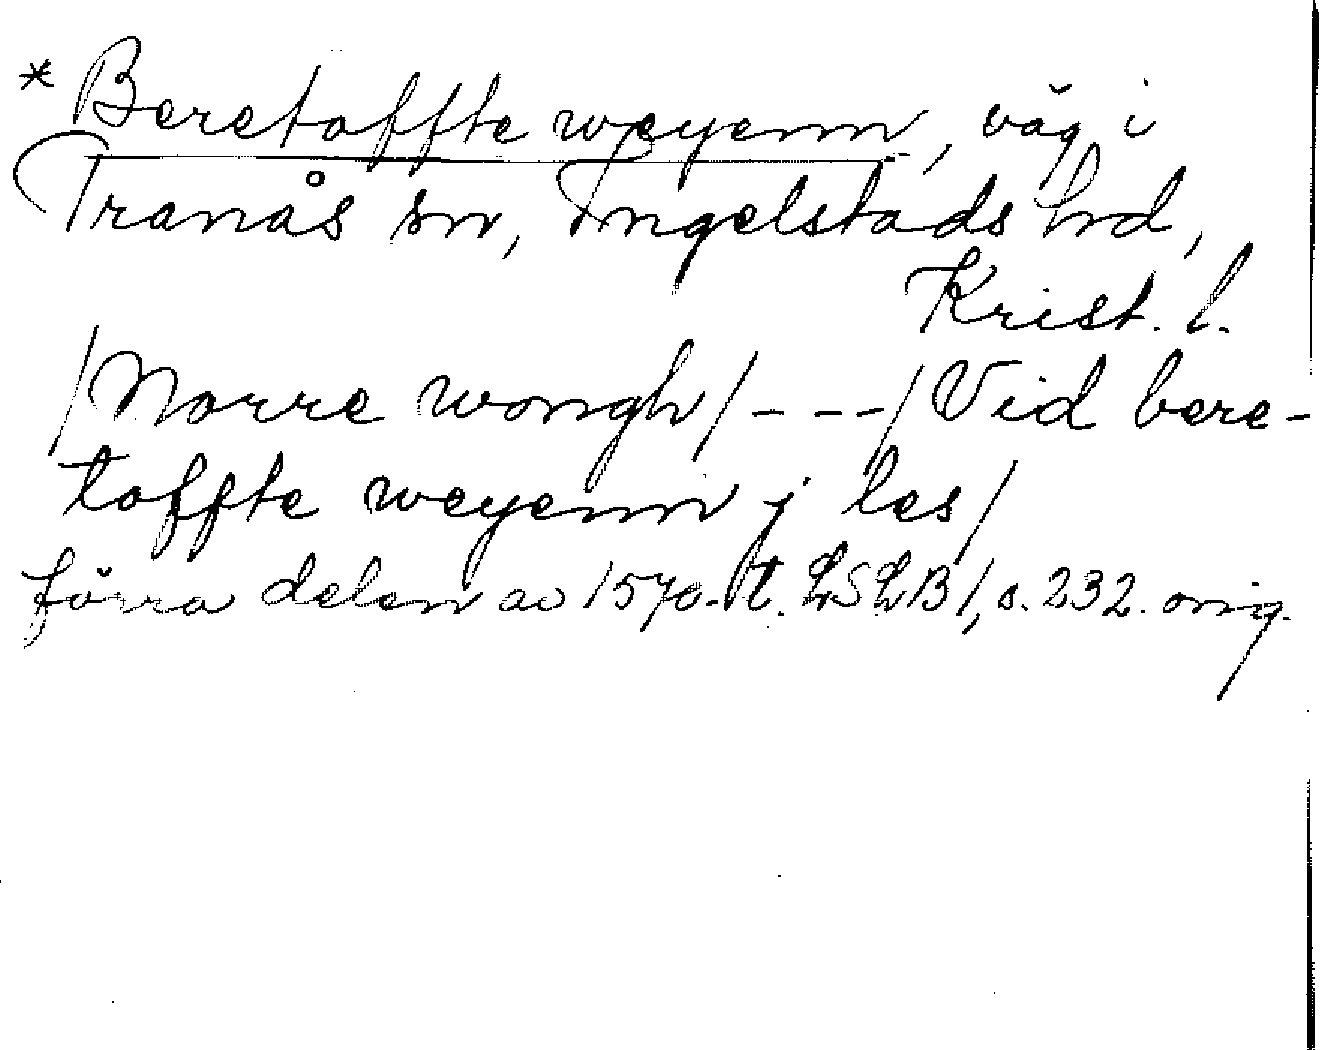 *Beretoffte weyenn, väg i
Tranås sn, Ingelstads hrd,
Krist. l.
/Norre wongh/---/Vid bere-
toffte weyenn j les/
förra delen av 1570-t. LSLB1, s. 232. orig.